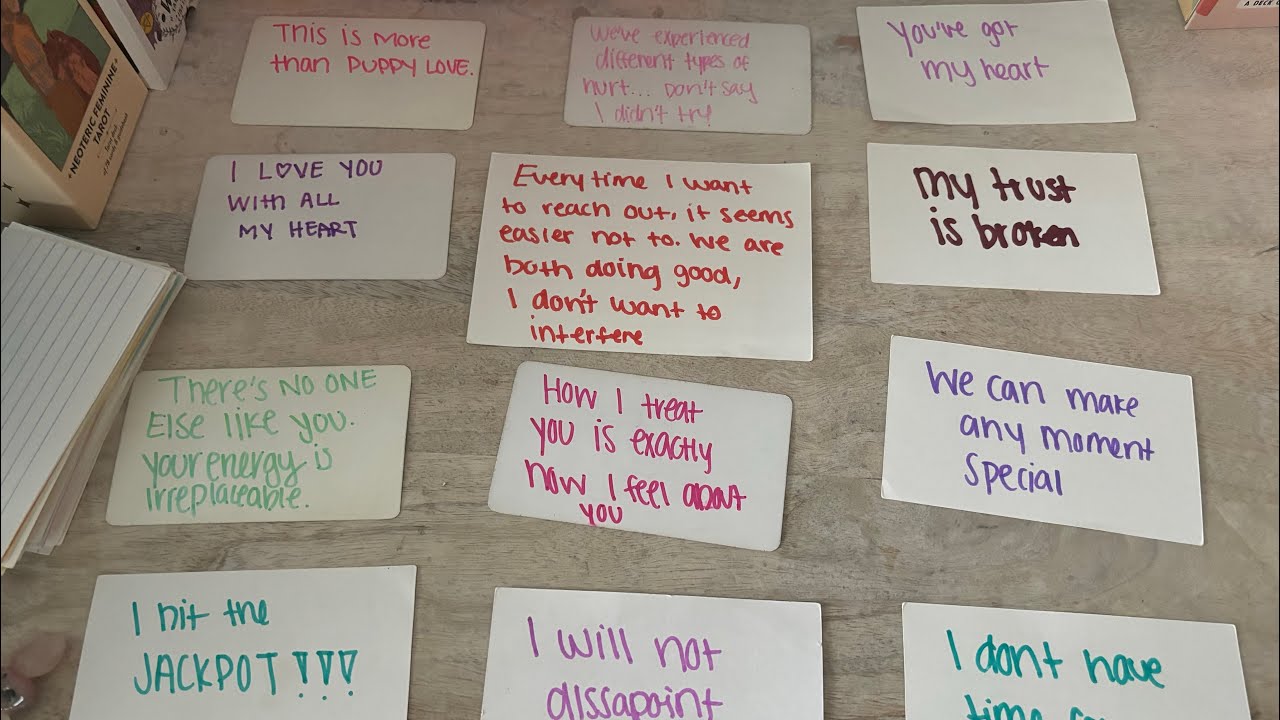 This is more
than PUPPY LOVE.
We've experienced
different types of
hurt... Don't say
I didn't try!
You've got
my heart
I L♡VE YOU
With ALL
MY HEART
Everytime I want
to reach out, it seems
easier not to. We are
both doing good,
I don't want to
interfere
My trust
is broken
There's NO ONE
Else like you.
your energy is
irreplaceable.
How I treat
you is exactly
how I feel about
you
We can make
any moment
special
I hit the
JACKPOT!!!
I will not
dissapoint
I dont have
time for
NEOTERIC FEMININE
TAROT
A DECK O